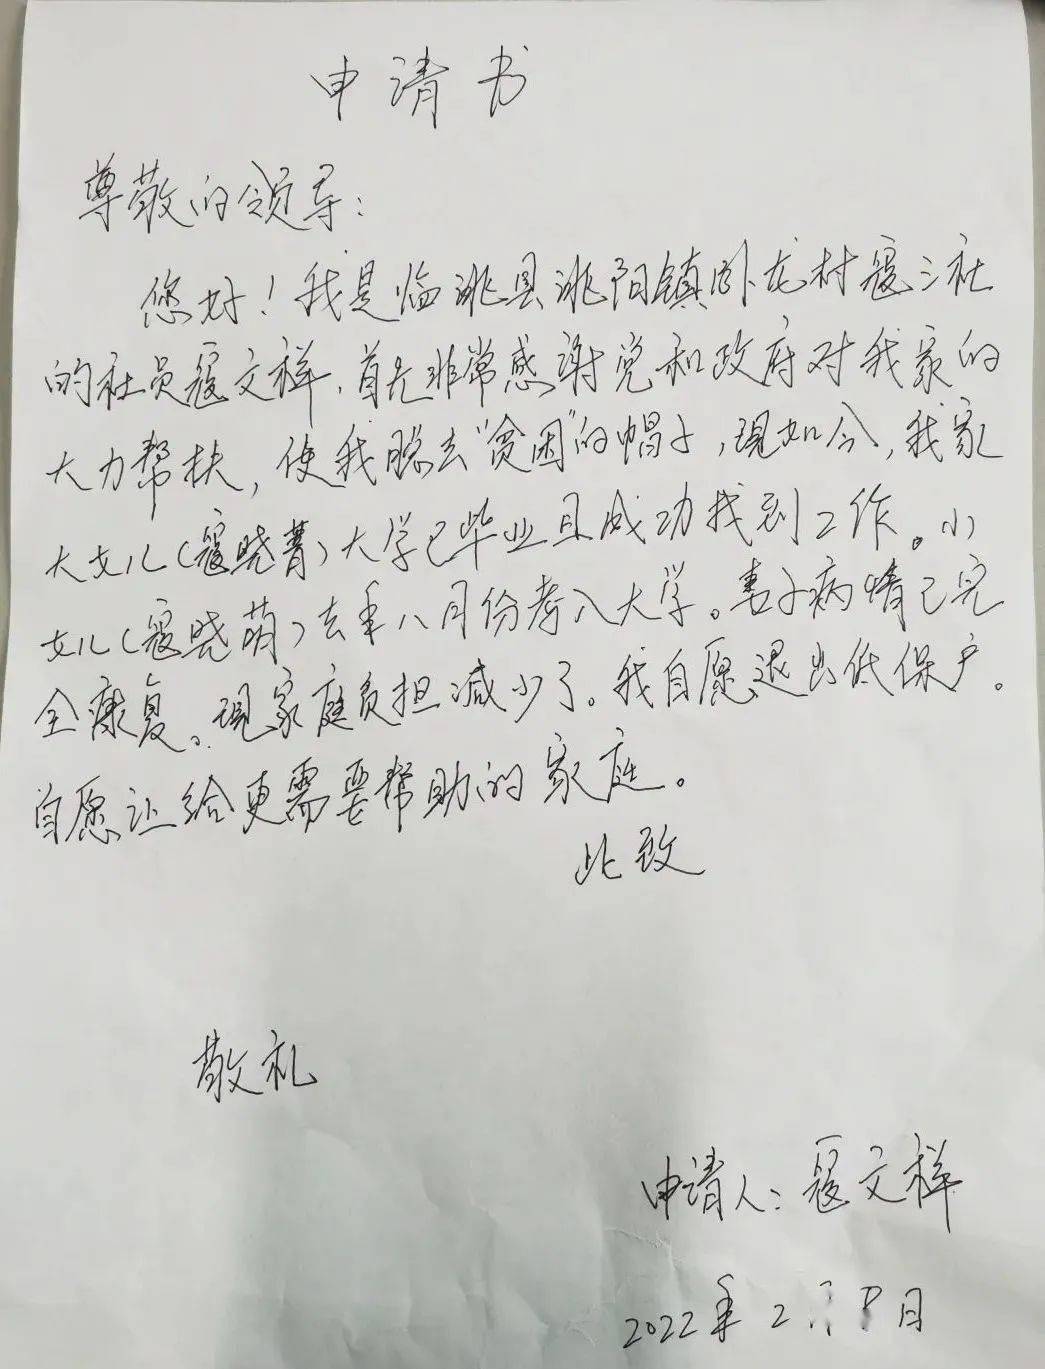 申请书
尊敬的领导：
您好！我是临洮县洮阳镇卧龙村寇三社
的社员寇文祥，首先非常感谢党和政府对我家的
大力帮扶，使我脱去“贫困”的帽子，现如今，我家
大女儿（寇晓菁）大学已毕业且成功找到工作。小
女儿（寇晓萌）去年八月份考入大学。妻子病情已完
全康复。现家庭负担减少了。我自愿退出低保户。
自愿让给更需要帮助的家庭。
此致
敬礼
申请人：寇文祥
2022年2月 日